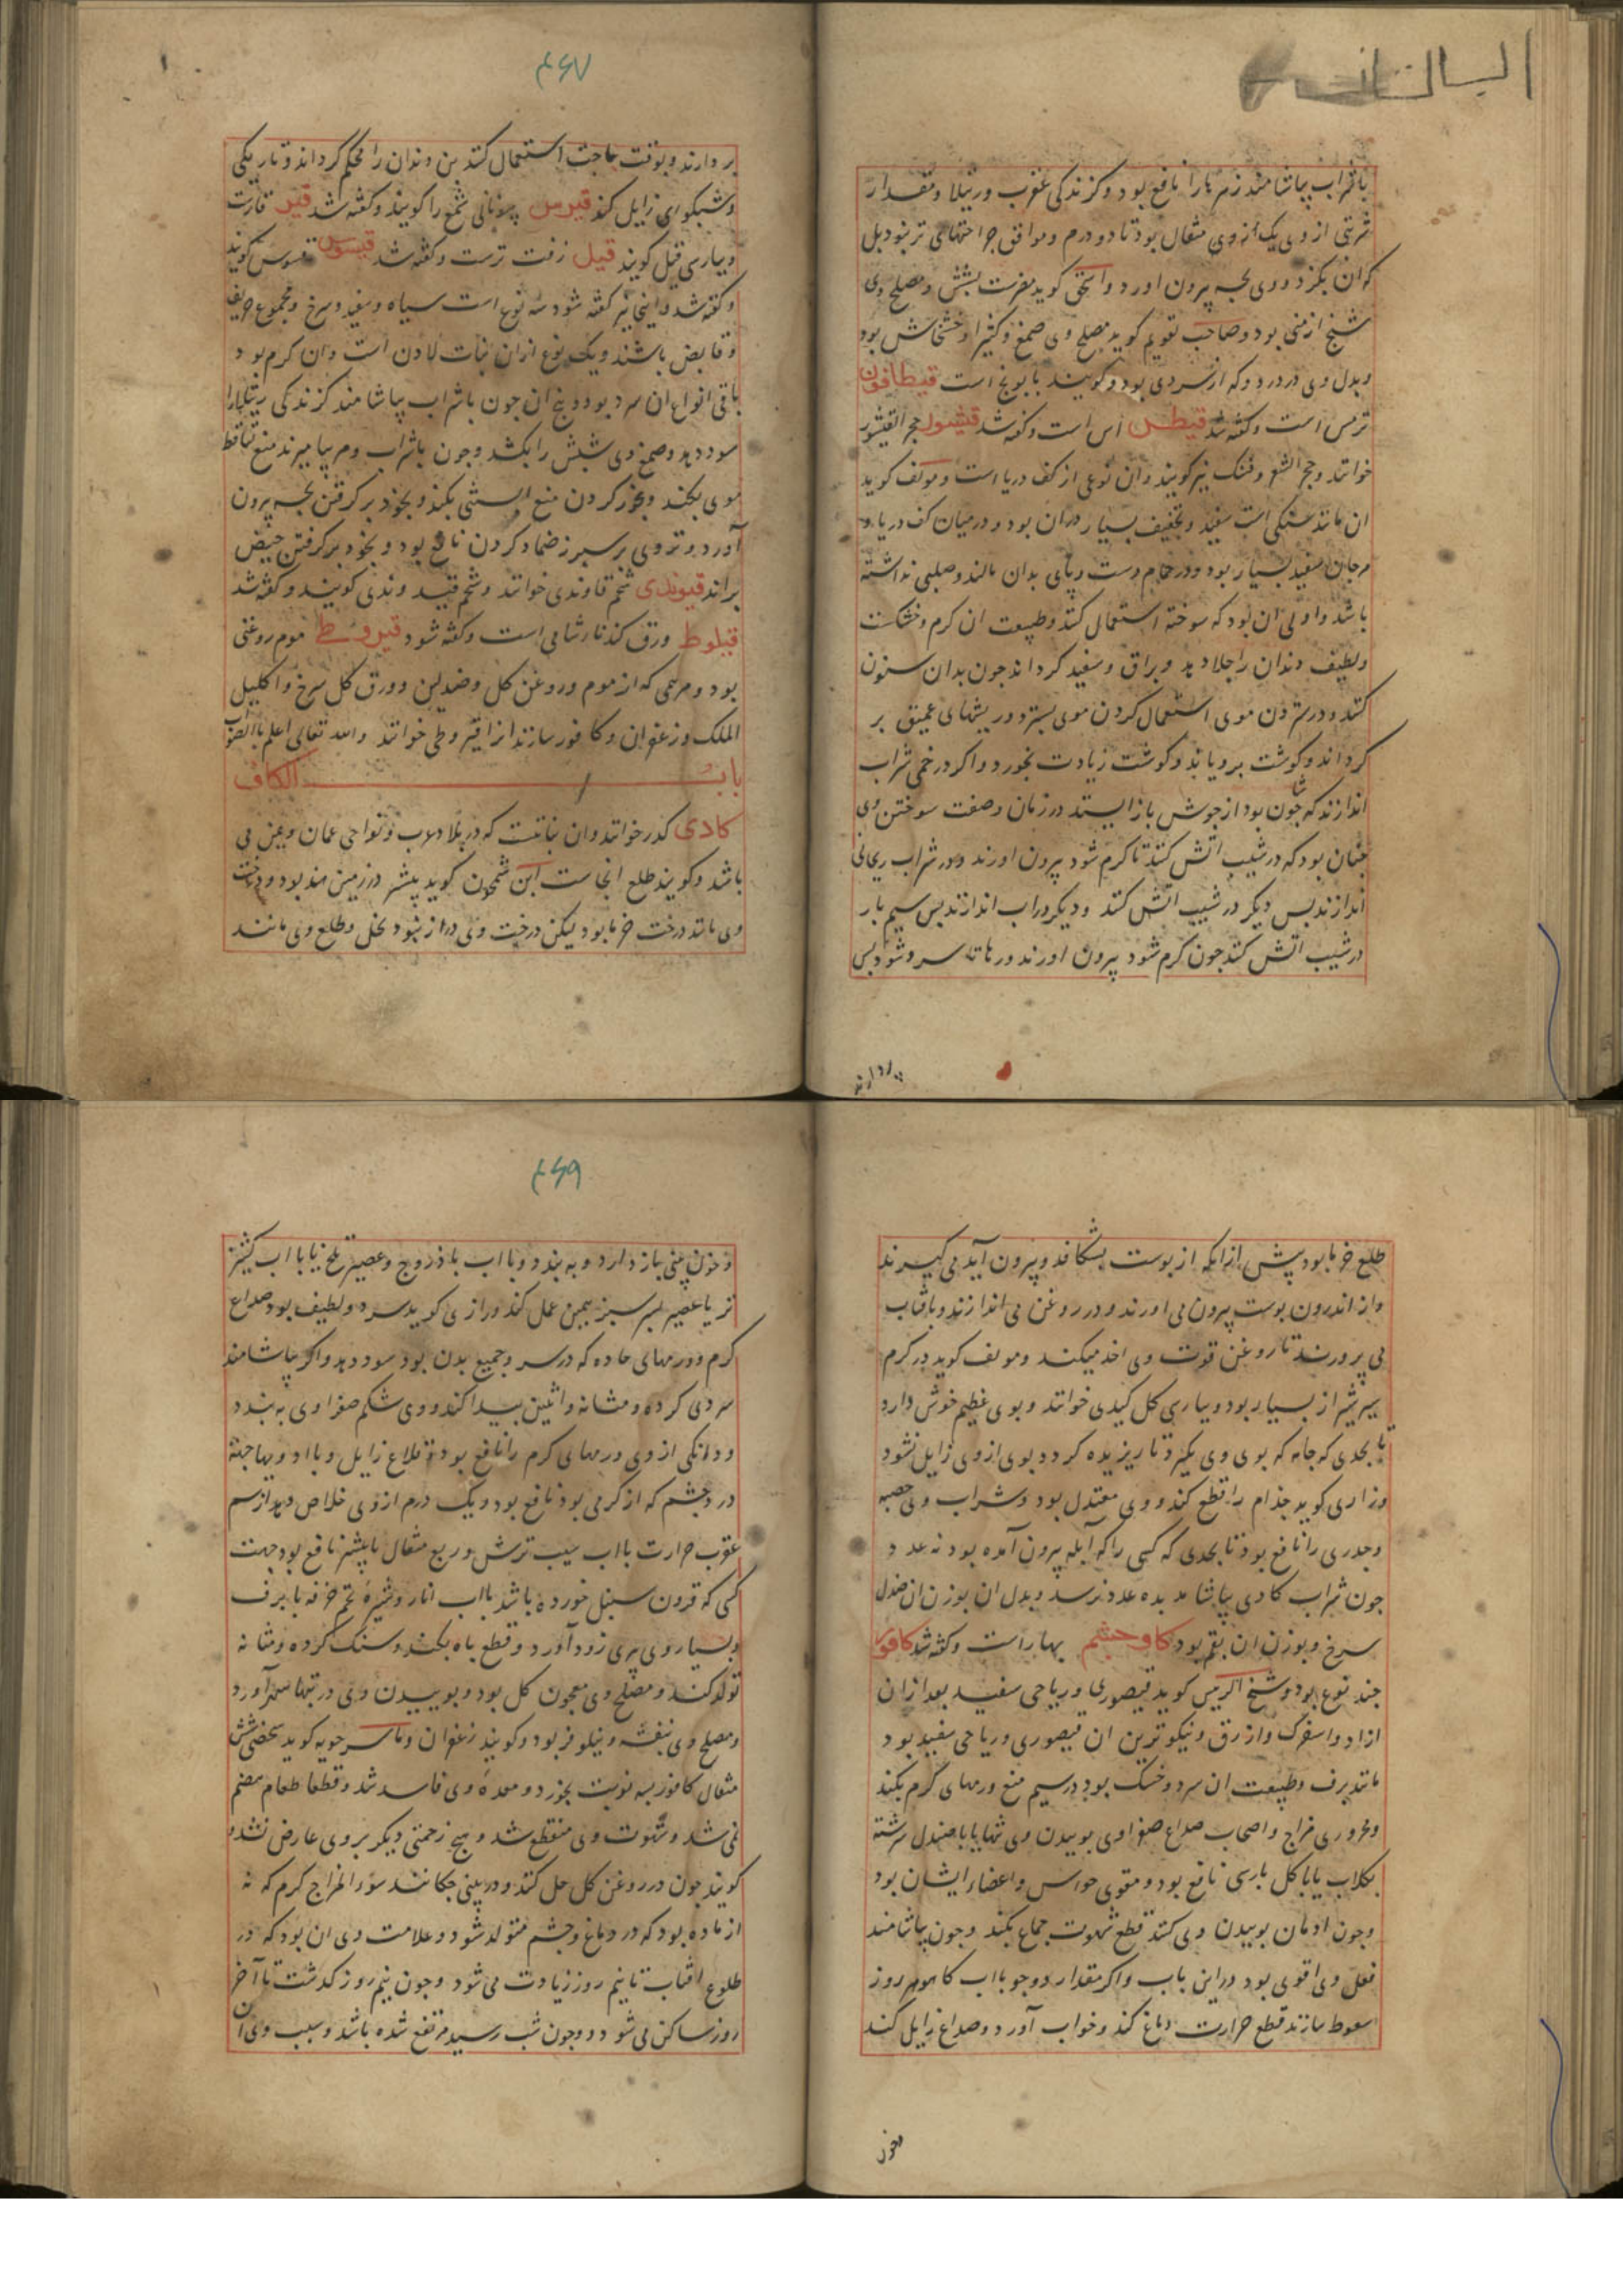 با شراب بیاشامند زهرها را نافع بود و کزندکی عقرب و رتیلا و مقدار
شربتی از وی یک از وی مثقال بود تا دو درم و موافق جراحتهای تر نبود بل
که ان بکزد و وی بچه بیرون اورد و اسحق کوید مضرست بشش و مصلح وی
شیخ ارمنی بود و صاحب تقویم کوید مصلح وی صمغ و کثیرا و خشخاش بود
و بدل وی در درد که از سردی بود و کویند بابونج است قیطافون
ترمس است و کفته شد قیطس اس است و کفته شد قیشور حجر القیشور
خوانند و حجر الشعر و فنک نیز کویند و ان نوعی از کف دریا است و مولف کوید
ان مانند سنکی است سفید و تجفیف بسیار در ان بود و در میان کف دریا و
مرجان سفید بسیار بود و در حمام دست و پای بدان مالند و صلبی نداشته
باشد و اولی ان بود که سوخته استعمال کنند و طبیعت ان کرم و خشکست
و لطیف دندان را جلا دهد و براق و سفید کرداند جون بدان سنون
کنند و در ستردن موی استعمال کردن موی بسترد و ریشهای عمیق بر
کرداند و کوشت برویاند و کوشت زیادت بخورد و اکر در خمی شراب
اندازند که جوشان بود از جوش باز ایستد در زمان و صفت سوختن وی
جنان بود که در شیب اتش کنند تا کرم شود بیرون اورند و در شراب ریحانی
اندازند بس دیکر در شیب اتش کنند و دیکر در اب اندازند بس سیم بار
در شیب اتش کنند جون کرم شود بیرون اورند و رها تا سرد شود بس
بردارند
۴۶۷
بردارند و بوقت حاجت استعمال کنند بن دندان را محکم کرداند و تاریکی
و شبکوری زایل کند قیرس بیونانی شمع را کویند و کفته شد قیر قارت
و بپارسی قیل کویند قیل زفت ترست و کفته شد قیسوس قسوس کویند
و کفته شد و اینجا نیز کفته شود سه نوع است سیاه و سفید و سرخ و مجموع حریف
و قابض باشند و یک نوع از ان نبات لادن است و ان کرم بود
باقی انواع ان سرد بود و بیخ ان جون با شراب بیاشامند کزندکی رتیلا را
سود دهد و صمغ وی شبش را بکشد و جون با شراب و مر بیامیزند منع تساقط
موی بکند و بخور کردن منع ابستنی بکند و بخود برکرفتن بچه بیرون
آورد و تر وی بر سپرز ضماد کردن نافع بود و بخود برکرفتن حیض
براند قیوندی شحم قاوندی خوانند و شحم قیند وندی کویند و کفته شد
قیلوط ورق کندنا شامی است و کفته شود قیروطی موم روغنی
بود و مرهمی که از موم و روغن کل و صندلین و ورق کل سرخ و اکلیل
الملک و زعفران و کافور سازند انرا قیروطی خوانند والله تعالی اعلم بالصواب
باب الکاف
کادی کدر خوانند و ان نباتست که در بلاد عرب و نواحی عمان و یمن می
باشد و کویند طلع انجاست ابن سمحون کوید بیشتر در زمین هند بود و درخت
وی مانند درخت خرما بود لیکن درخت وی دراز نبود نخل و طلع وی مانند
طلع خرما بود بیش ازانکه از بوست بشکافد و بیرون آید می کیرند
و از اندرون بوست بیرون می اورند و در روغن می اندازند و بافتاب
می پرورند تا روغن قوت وی اخذ میکند و مولف کوید در کرم
سیر شیراز بسیار بود و بپارسی کل کیدی خوانند و بوی عظیم خوش دارد
تا بحدی که جامه که بوی وی بکیرد تا ریزیده کردد بوی ازوی زایل نشود
و رازی کوید جذام را قطع کند و وی معتدل بود و شراب وی حصبه
و جدری را نافع بود تا بحدی که کسی را که آبله بیرون آمده بود نه عدد
جون شراب کادی بیاشامد به ده عدد نرسد و بدل ان بوزن ان صندل
سرخ و بوزن ان بقم بود کاوجشم بهاراست و کفته شد کافور
جند نوع بود و شیخ الرئیس کوید قیصوری و ریاحی سفید بعد ازان
ازاد و اسفرک و ازرق و نیکوترین ان قیصوری و ریاحی سفید بود
مانند برف و طبیعت ان سرد و خشک بود در سیم منع ورمهای کرم بکند
و محروری مزاج و اصحاب صداع صفراوی بوییدن وی تنها یا با صندل سرشته
بکلاب یا با کل پارسی نافع بود و مقوی حواس و اعضاء ایشان بود
و جون ادمان بوییدن وی کنند قطع شهوت جماع بکند و جون بیاشامند
فعل وی اقوی بود در این باب و اکر مقدار دو جو با اب کاهو هر روز
سعوط سازند قطع حرارت دماغ کند و خواب آورد و صداع زایل کند
و خون
۴۶۹
و خون بینی باز دارد و ببندد و با اب باذروج و عصیر بلح یا با اب کشنیز
تر یا عصیر بسر سبز همین عمل کند و رازی کوید سرد و لطیف بود صداع
کرم و ورمهای حاده که در سر و جمیع بدن بود سود دهد و اکر بیاشامند
سردی کرده و مثانه و انثیین بیدا کند و وی شکم صفراوی ببندد
و دانکی از وی ورمهای کرم را نافع بود و قلاع زایل و با ادویها جهة
درد چشم که از کرمی بود نافع بود و یک درم از وی خلاص دهد از سم
عقرب حرارت با اب سیب ترش و ربع مثقال یا بیشتر نافع بود جهت
کسی که قرون سنبل خورده باشد با اب انار و شیره تخم خرفه با برف
و بسیار وی بیری زود آورد و قطع باه بکند و سنک کرده و مثانه
تولد کند و مصلح وی معجون کل بود و بوییدن وی در تبها سهر آورد
و مصلح وی بنفشه و نیلوفر بود و کویند زعفران و ماسرجویه کوید شخصی شش
مثقال کافور بسه نوبت بخورد و معدۀ وی فاسد شد و قطعا طعام هضم
نمی شد و شهوت وی منقطع شد و هیچ زحمتی دیکر بر وی عارض نشد و
کویند جون در روغن کل حل کنند و در بینی چکانند سوء المزاج کرم که نه
از ماده بود که در دماغ و جشم متولد شود و علامت وی ان بود که در
طلوع افتاب تا نیم روز زیادت می شود و جون نیم روز کذشت تا آخر
روز ساکن می شود و جون شب رسید مرتفع شده باشد و سبب وی ان